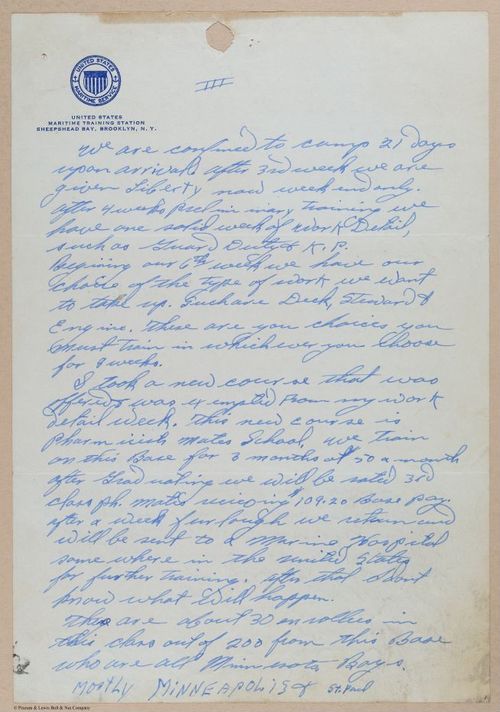 III
UNITED STATES
MARITIME SERVICE
UNITED STATES
MARITIME TRAINING STATION
SHEEPSHEAD BAY, BROOKLYN, N. Y.
We are confined to camp 21 days
upon arrival. after 3rd week we are
given Liberty now weekend only.
After 4 weeks Preliminary training we
have one solid week of work Detail,
such as Guard Duty & K. P.
Begining our 6th week we have our
choice of the type of work we want
to take up. Such are Deck, Steward &
Engine. these are you choices you
must train in whichever you choose
for 8 weeks.
I took a new course that was
offered & was exempted From my work
detail week. this new course is
Pharmicist mates School, we train
on this Base for 3 months at $50 a month
after Graduating we will be rated 3rd
class ph. mates recieving $109.20 Base pay.
after a week furlough we return and
will be sent to a Marine Hospital
some where in the United States
for further training. after that I dont
know what will happen.
There are about 30 enrollies in
this class out of 200 from this Base
who are all Minnesota Boys.
Mostly MINNEAPOLIS & St. Paul
© Pearson & Lewis Bolt & Nut Company